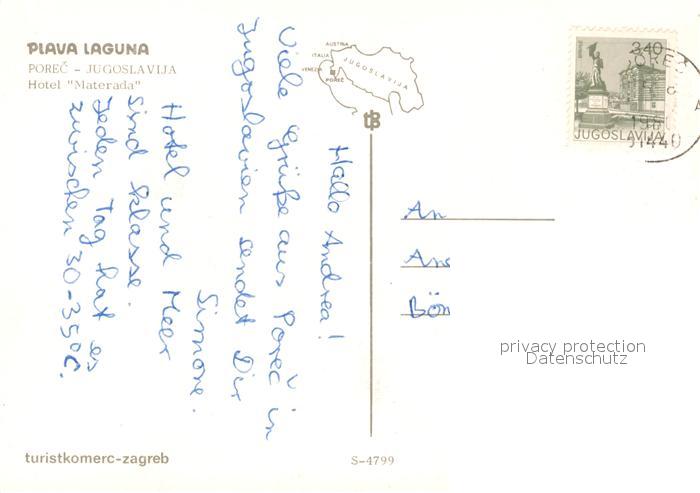 PLAVA LAGUNA
POREČ - JUGOSLAVIJA
Hotel "Materada"
AUSTRIA
ITALIA
VENEZIA
POREČ
JUGOSLAVIJA
Hallo Andrea!
Viele Grüße aus Poreč in
Jugoslavien sendet Dir
Simone.
Hotel und Meer
sind klasse.
Jeden Tag hat es
zwischen 30-35°C.
3.40
JUGOSLAVIJA
51440
An
An
Bön
privacy protection
Datenschutz
turistkomerc-zagreb
S-4799